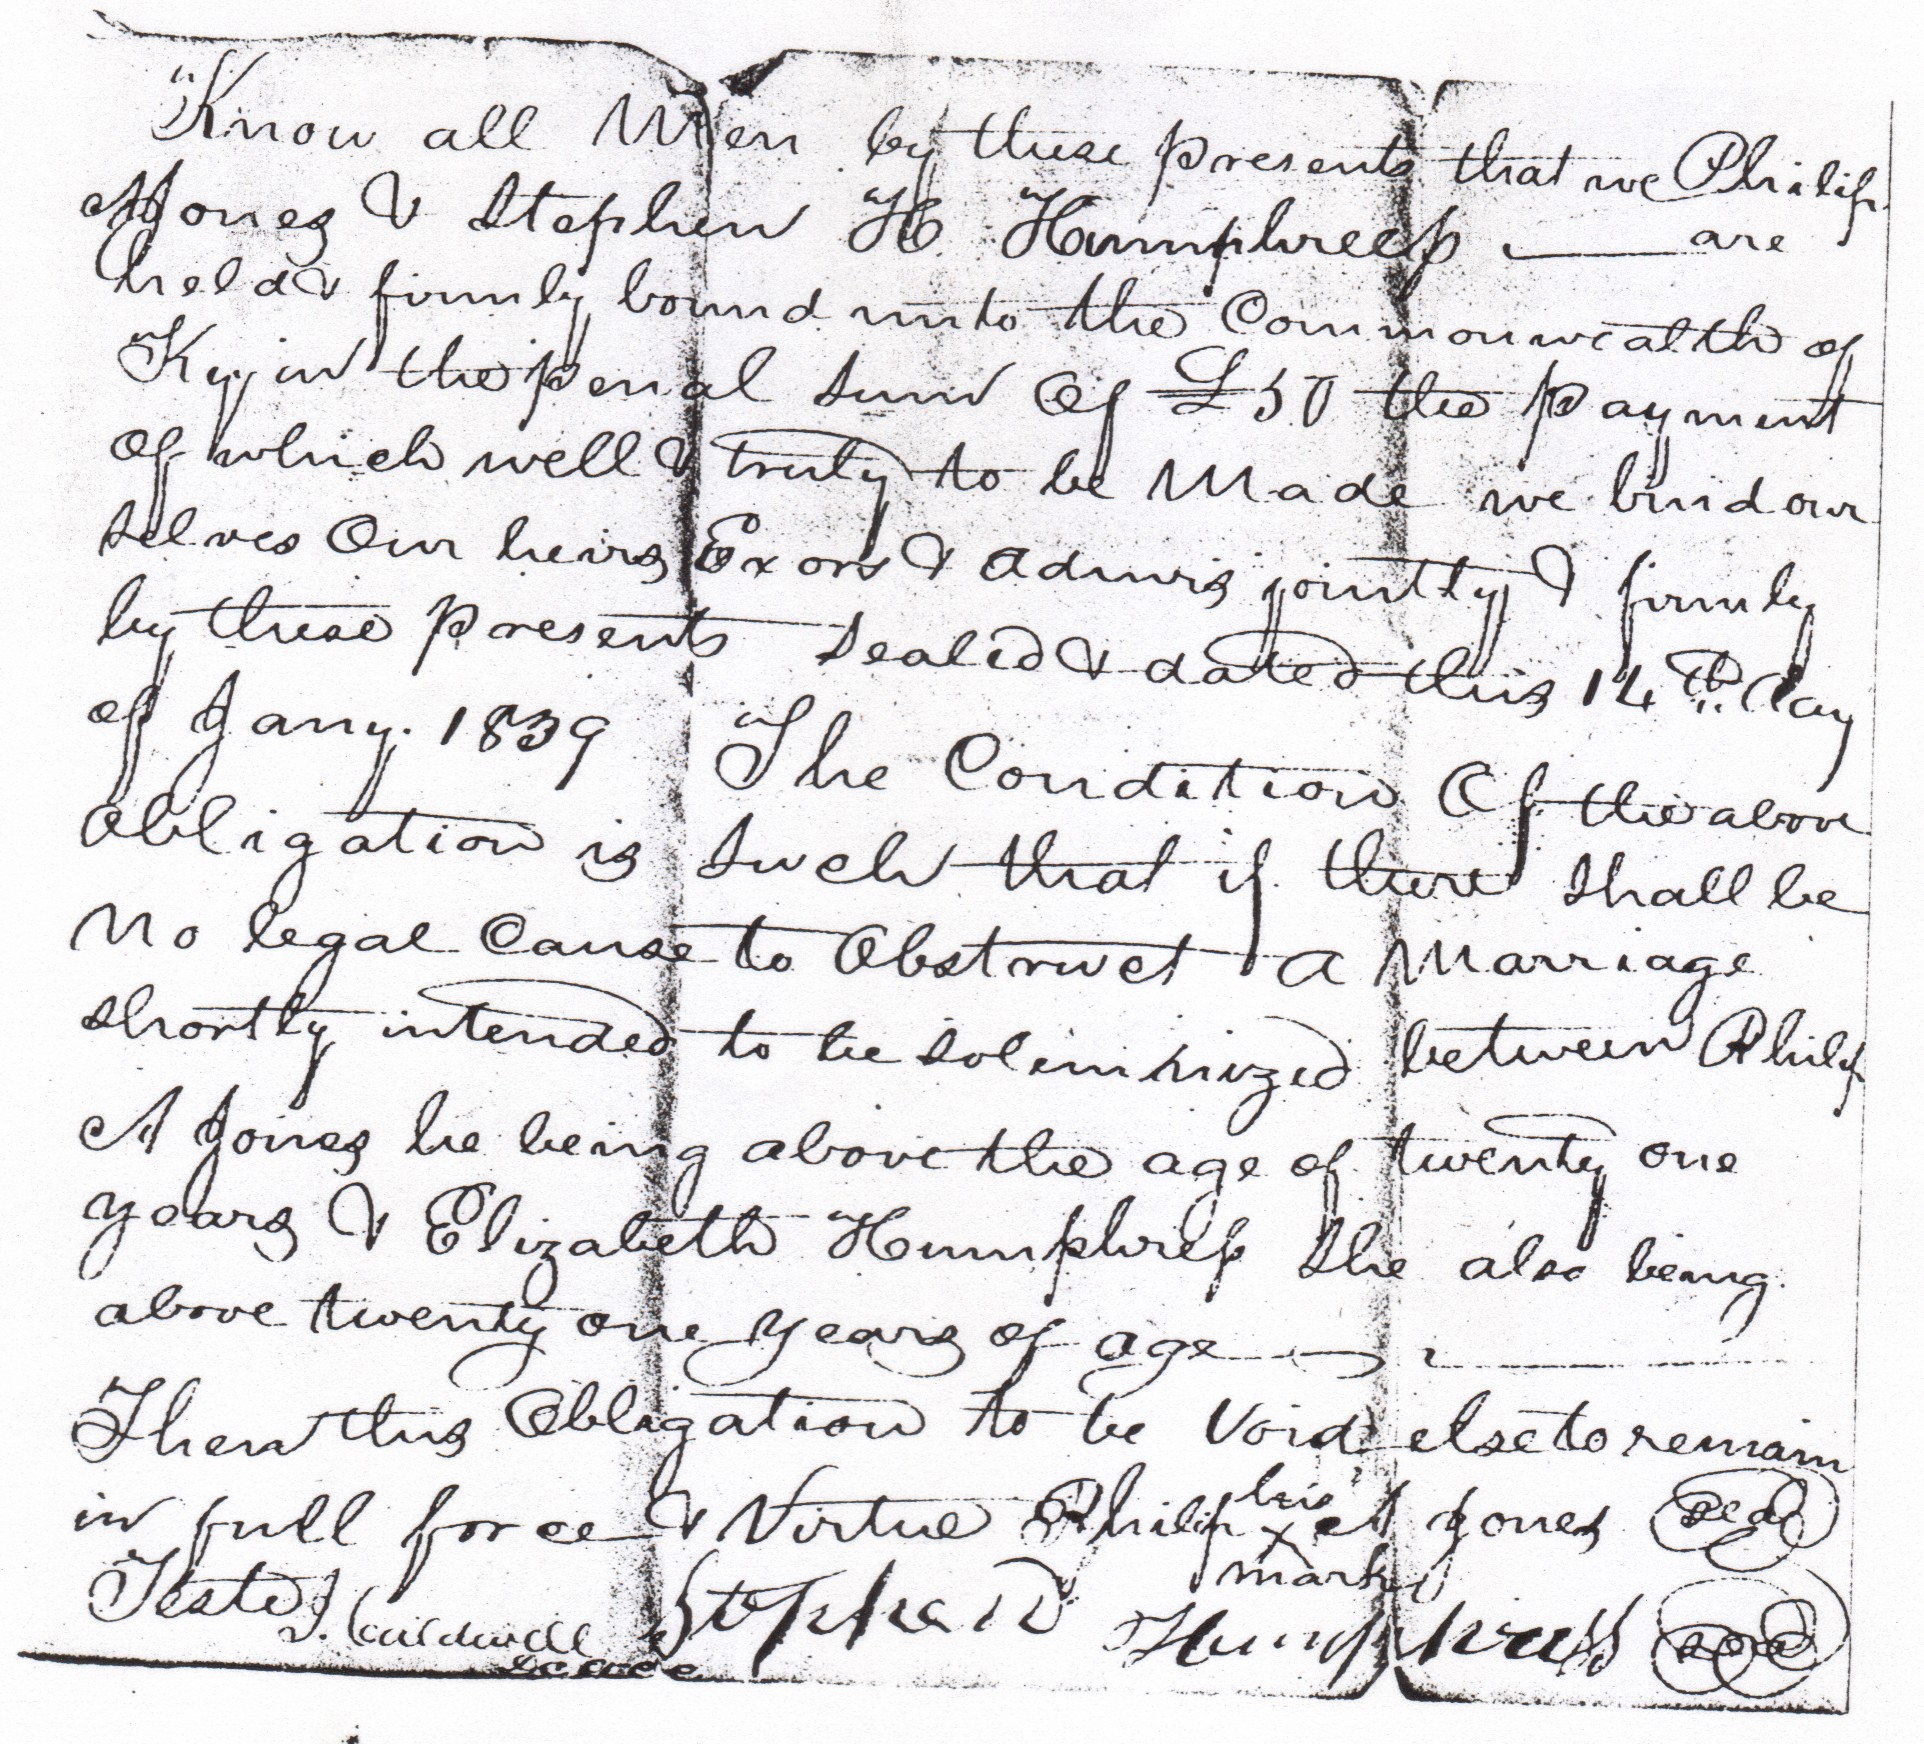 Know all Men by these presents that we Philip
A Jones & Stephen H Humphress are
held & firmly bound unto the Commonwealth of
Ky in the penal sum of £50 the payment
of which well & truly to be made we bind our
selves Our heirs Exors & Admrs jointly & firmly
by these presents sealed & dated this 14th Day
of Jany. 1839 The Condition Of the above
Obligation is such that if there shall be
No legal Cause to Obstruct a Marriage
shortly intended to be solemnized between Philip
A Jones he being above the age of twenty one
years & Elizabeth Humphress she also being
above twenty one years of age
Then this Obligation to be Void else to remain
in full force & Virtue Philip his x mark A Jones seal
Teste J. Caldwell Stephen Humphress seal